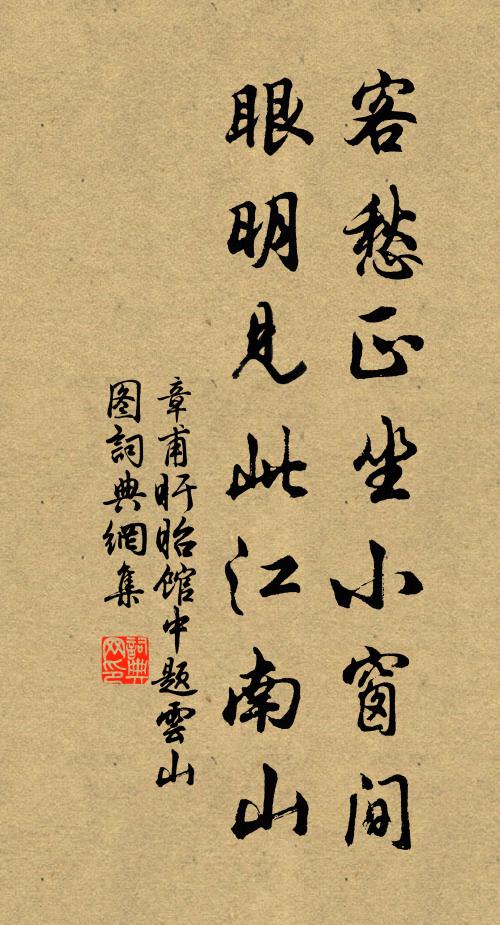 客愁正坐小窗间
眼明见此江南山
章甫盱眙馆中题雲山
图詞典網集
詞典网印